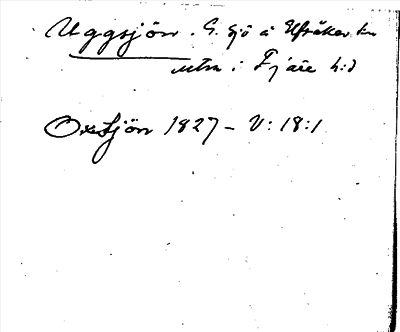 Uggsjön. G. sjö å Elfsåker
utm i Fjäre h:d
Oxsjön 1827 – V: 18:1